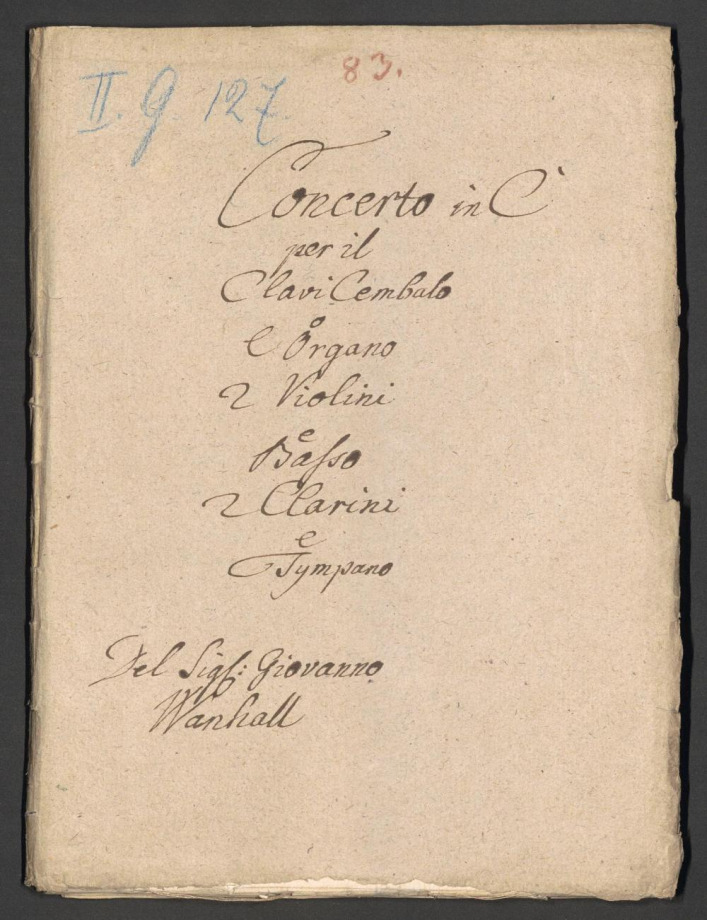 II. G. 127
83.
Concerto in C
per il
Clavi Cembalo
e
Organo
2 Violini
e
Basso
2 Clarini
e
Tympano
Del Sigl: Giovanno
Wanhall